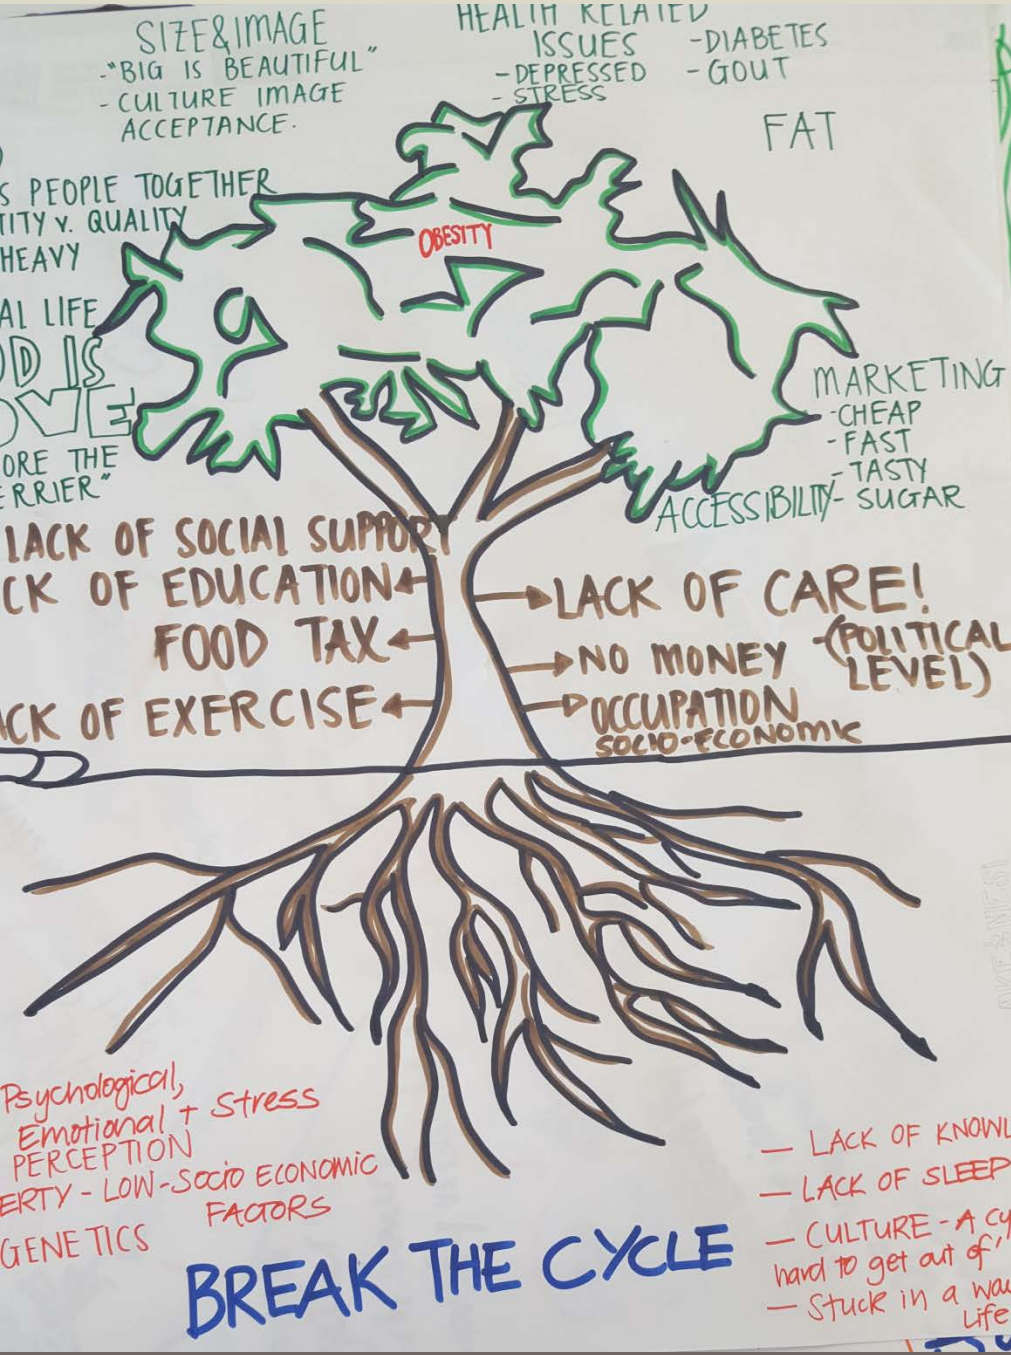 SIZE&IMAGE
-"BIG IS BEAUTIFUL"
- CULTURE IMAGE
ACCEPTANCE.
HEALTH RELATED
ISSUES
- DEPRESSED
- STRESS
-DIABETES
-GOUT
FAT
S PEOPLE TOGETHER
TITY V. QUALITY
HEAVY
AL LIFE
OD IS
OVE
ORE THE
ERRIER"
OBESITY
MARKETING
-CHEAP
-FAST
-TASTY
ACCESSIBILITY- SUGAR
LACK OF SOCIAL SUPPORT
CK OF EDUCATION
FOOD TAX
ACK OF EXERCISE
LACK OF CARE!
NO MONEY -(POLITICAL
LEVEL)
OCCUPATION
SOCIO-ECONOMIC
Psychological,
Emotional + Stress
PERCEPTION
ERTY - LOW-Socio ECONOMIC
FACTORS
GENETICS
BREAK THE CYCLE
— LACK OF KNOWL
— LACK OF SLEEP
— CULTURE - A CY
hard to get out of'
— Stuck in a wa
Life